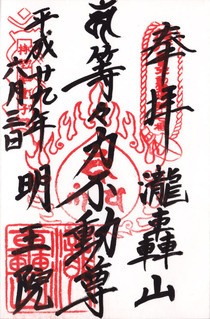 奉拝
瀧轟山
等々力不動尊
平成廿九年
六月三日
明王院